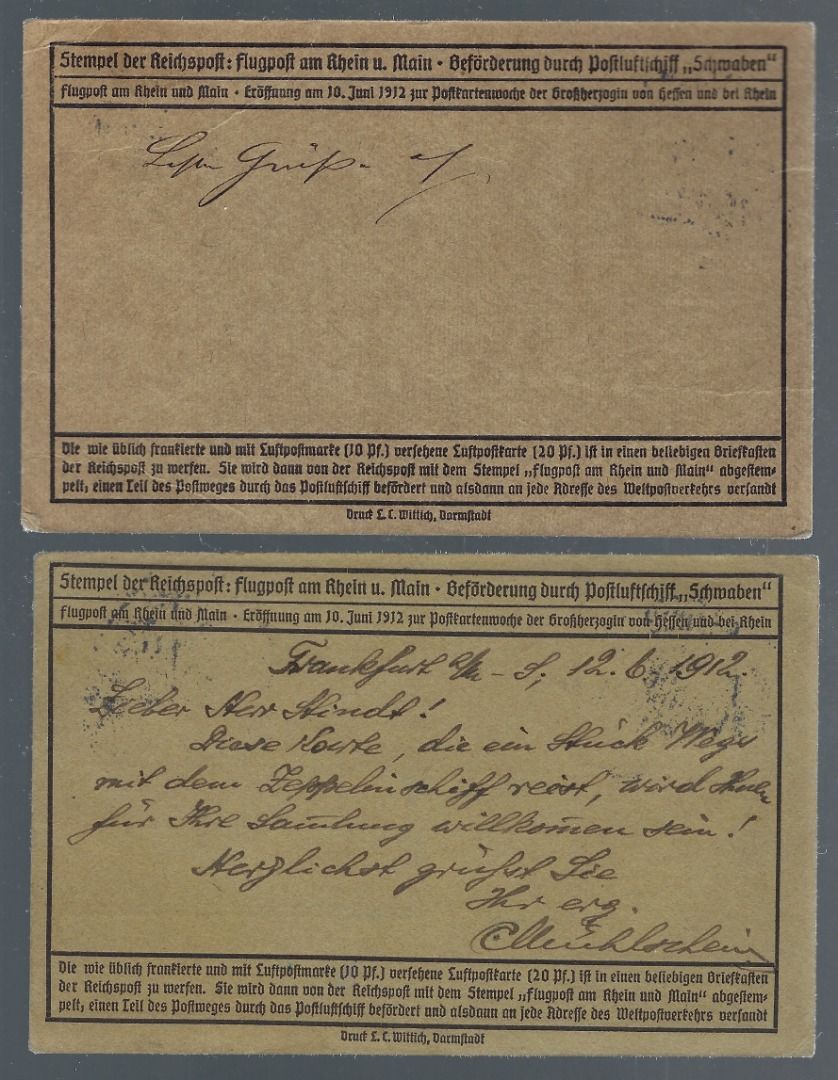 Stempel der Reichspost: Flugpost am Rhein u. Main · Beförderung durch Postluftschiff „Schwaben“
Flugpost am Rhein und Main · Eröffnung am 10. Juni 1912 zur Postkartenwoche der Großherzogin von Hessen und bei Rhein
Grüße
Die wie üblich frankierte und mit Luftpostmarke (10 Pf.) versehene Luftpostkarte (20 Pf.) ist in einen beliebigen Briefkasten
der Reichspost zu werfen. Sie wird dann von der Reichspost mit dem Stempel „Flugpost am Rhein und Main“ abgestem-
pelt, einen Teil des Postweges durch das Postluftschiff befördert und alsdann an jede Adresse des Weltpostverkehrs versandt
Druck L. C. Wittich, Darmstadt
Stempel der Reichspost: Flugpost am Rhein u. Main · Beförderung durch Postluftschiff „Schwaben“
Flugpost am Rhein und Main · Eröffnung am 10. Juni 1912 zur Postkartenwoche der Großherzogin von Hessen und bei Rhein
Frankfurt a/M - S, 12.6.1912.
Lieber Herr Hindt!
Diese Karte, die ein Stück Wegs
mit dem Zeppelinschiff reist, wird Ihnen
für Ihre Sam̄lung willkom̄en sein!
Herzlichst grüsst Sie
Ihr erg.
C. Muehlschein
Die wie üblich frankierte und mit Luftpostmarke (10 Pf.) versehene Luftpostkarte (20 Pf.) ist in einen beliebigen Briefkasten
der Reichspost zu werfen. Sie wird dann von der Reichspost mit dem Stempel „Flugpost am Rhein und Main“ abgestem-
pelt, einen Teil des Postweges durch das Postluftschiff befördert und alsdann an jede Adresse des Weltpostverkehrs versandt
Druck L. C. Wittich, Darmstadt